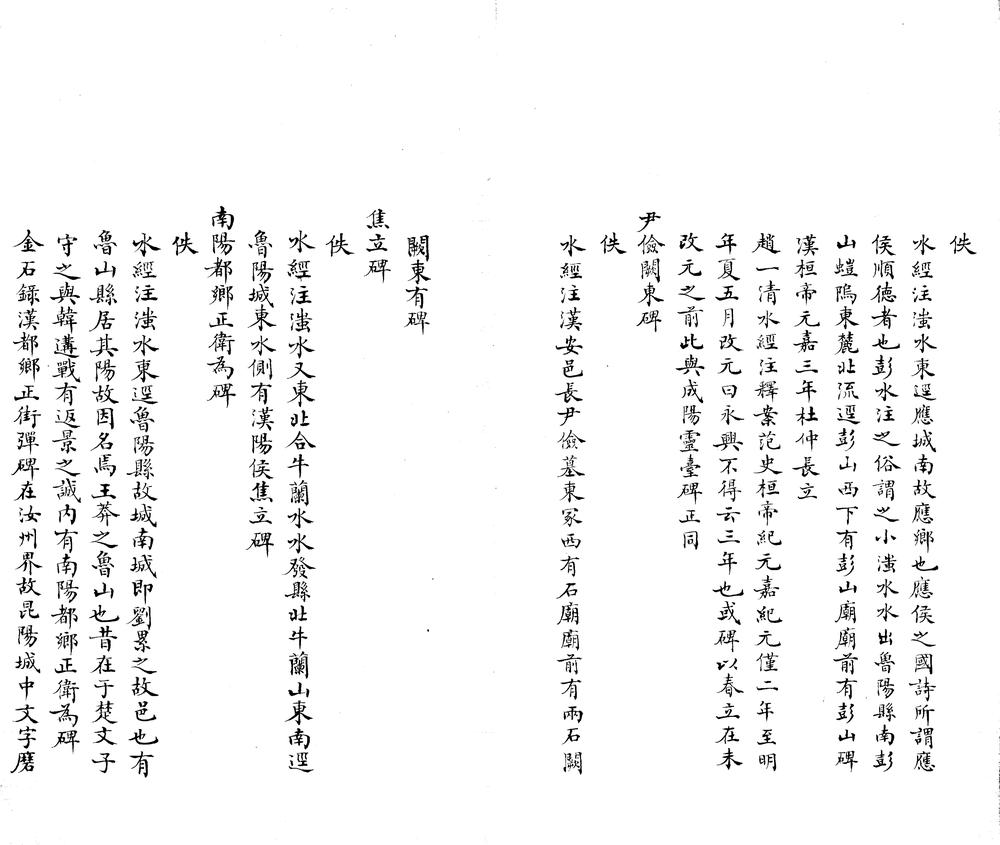 佚
水經注滍水東逕應城南故應鄉也應侯之國詩所謂應
侯順德者也彭水注之俗謂之小滍水水出魯陽縣南彭
山螘塢東麓北流逕彭山西下有彭山廟廟前有彭山碑
漢桓帝元嘉三年杜仲長立
趙一清水經注釋案范史桓帝紀元嘉紀元僅二年至明
年夏五月改元曰永興不得云三年也或碑以春立在未
改元之前此與成陽靈臺碑正同
尹儉闕東碑
佚
水經注漢安邑長尹儉墓東冢西有石廟廟前有兩石闕
闕東有碑
焦立碑
佚
水經注滍水又東北合牛蘭水水發縣北牛蘭山東南逕
魯陽城東水側有漢陽侯焦立碑
南陽都鄉正衛為碑
佚
水經注滍水東逕魯陽縣故城南城即劉累之故邑也有
魯山縣居其陽故因名焉王莽之魯山也昔在于楚文子
守之與韓遘戰有返景之誠內有南陽都鄉正衛為碑
金石錄漢都鄉正街彈碑在汝州界故昆陽城中文字磨